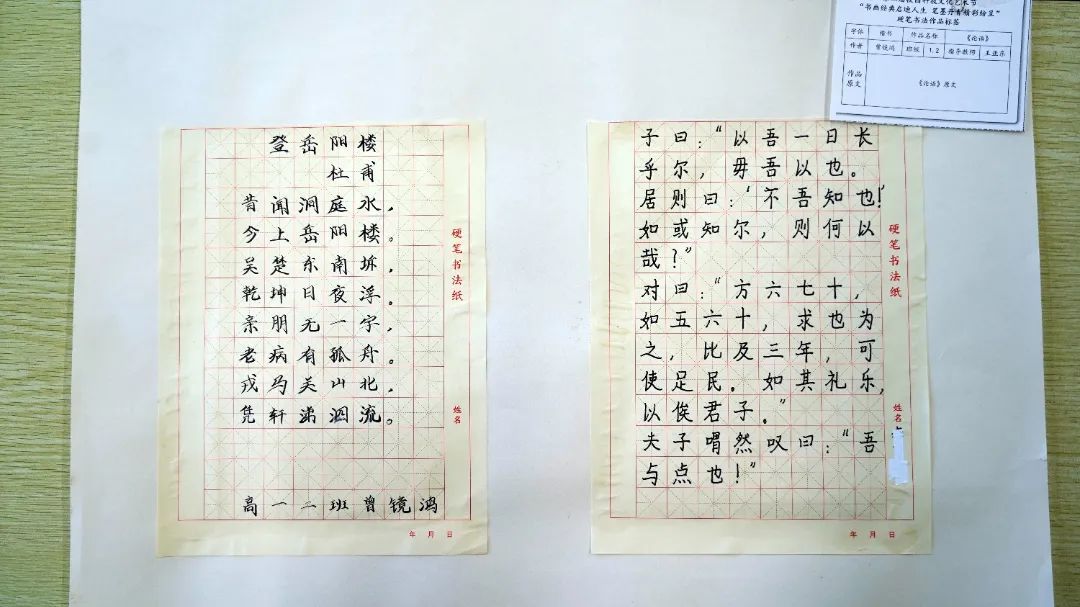 登岳阳楼
杜甫
昔闻洞庭水,
今上岳阳楼。
吴楚东南坼,
乾坤日夜浮。
亲朋无一字,
老病有孤舟。
戎马关山北,
凭轩涕泗流。
高一二班曾镜鸿
硬笔书法纸
姓名
年 月 日
子曰:“以吾一日长
乎尔,毋吾以也。
居则曰:‘不吾知也!’
如或知尔,则何以
哉?”
对曰:“方六七十,
如五六十,求也为
之,比及三年,可
使足民。如其礼乐,
以俟君子。”
夫子喟然叹曰:“吾
与点也!”
硬笔书法纸
姓名
年 月 日
“书画经典启迪人生 笔墨丹青精彩纷呈”
硬笔书法作品标签
字体 楷书 作品名称 《论语》
作者 曾镜鸿 班级 1.2 指导教师 王亚东
作品原文 《论语》原文